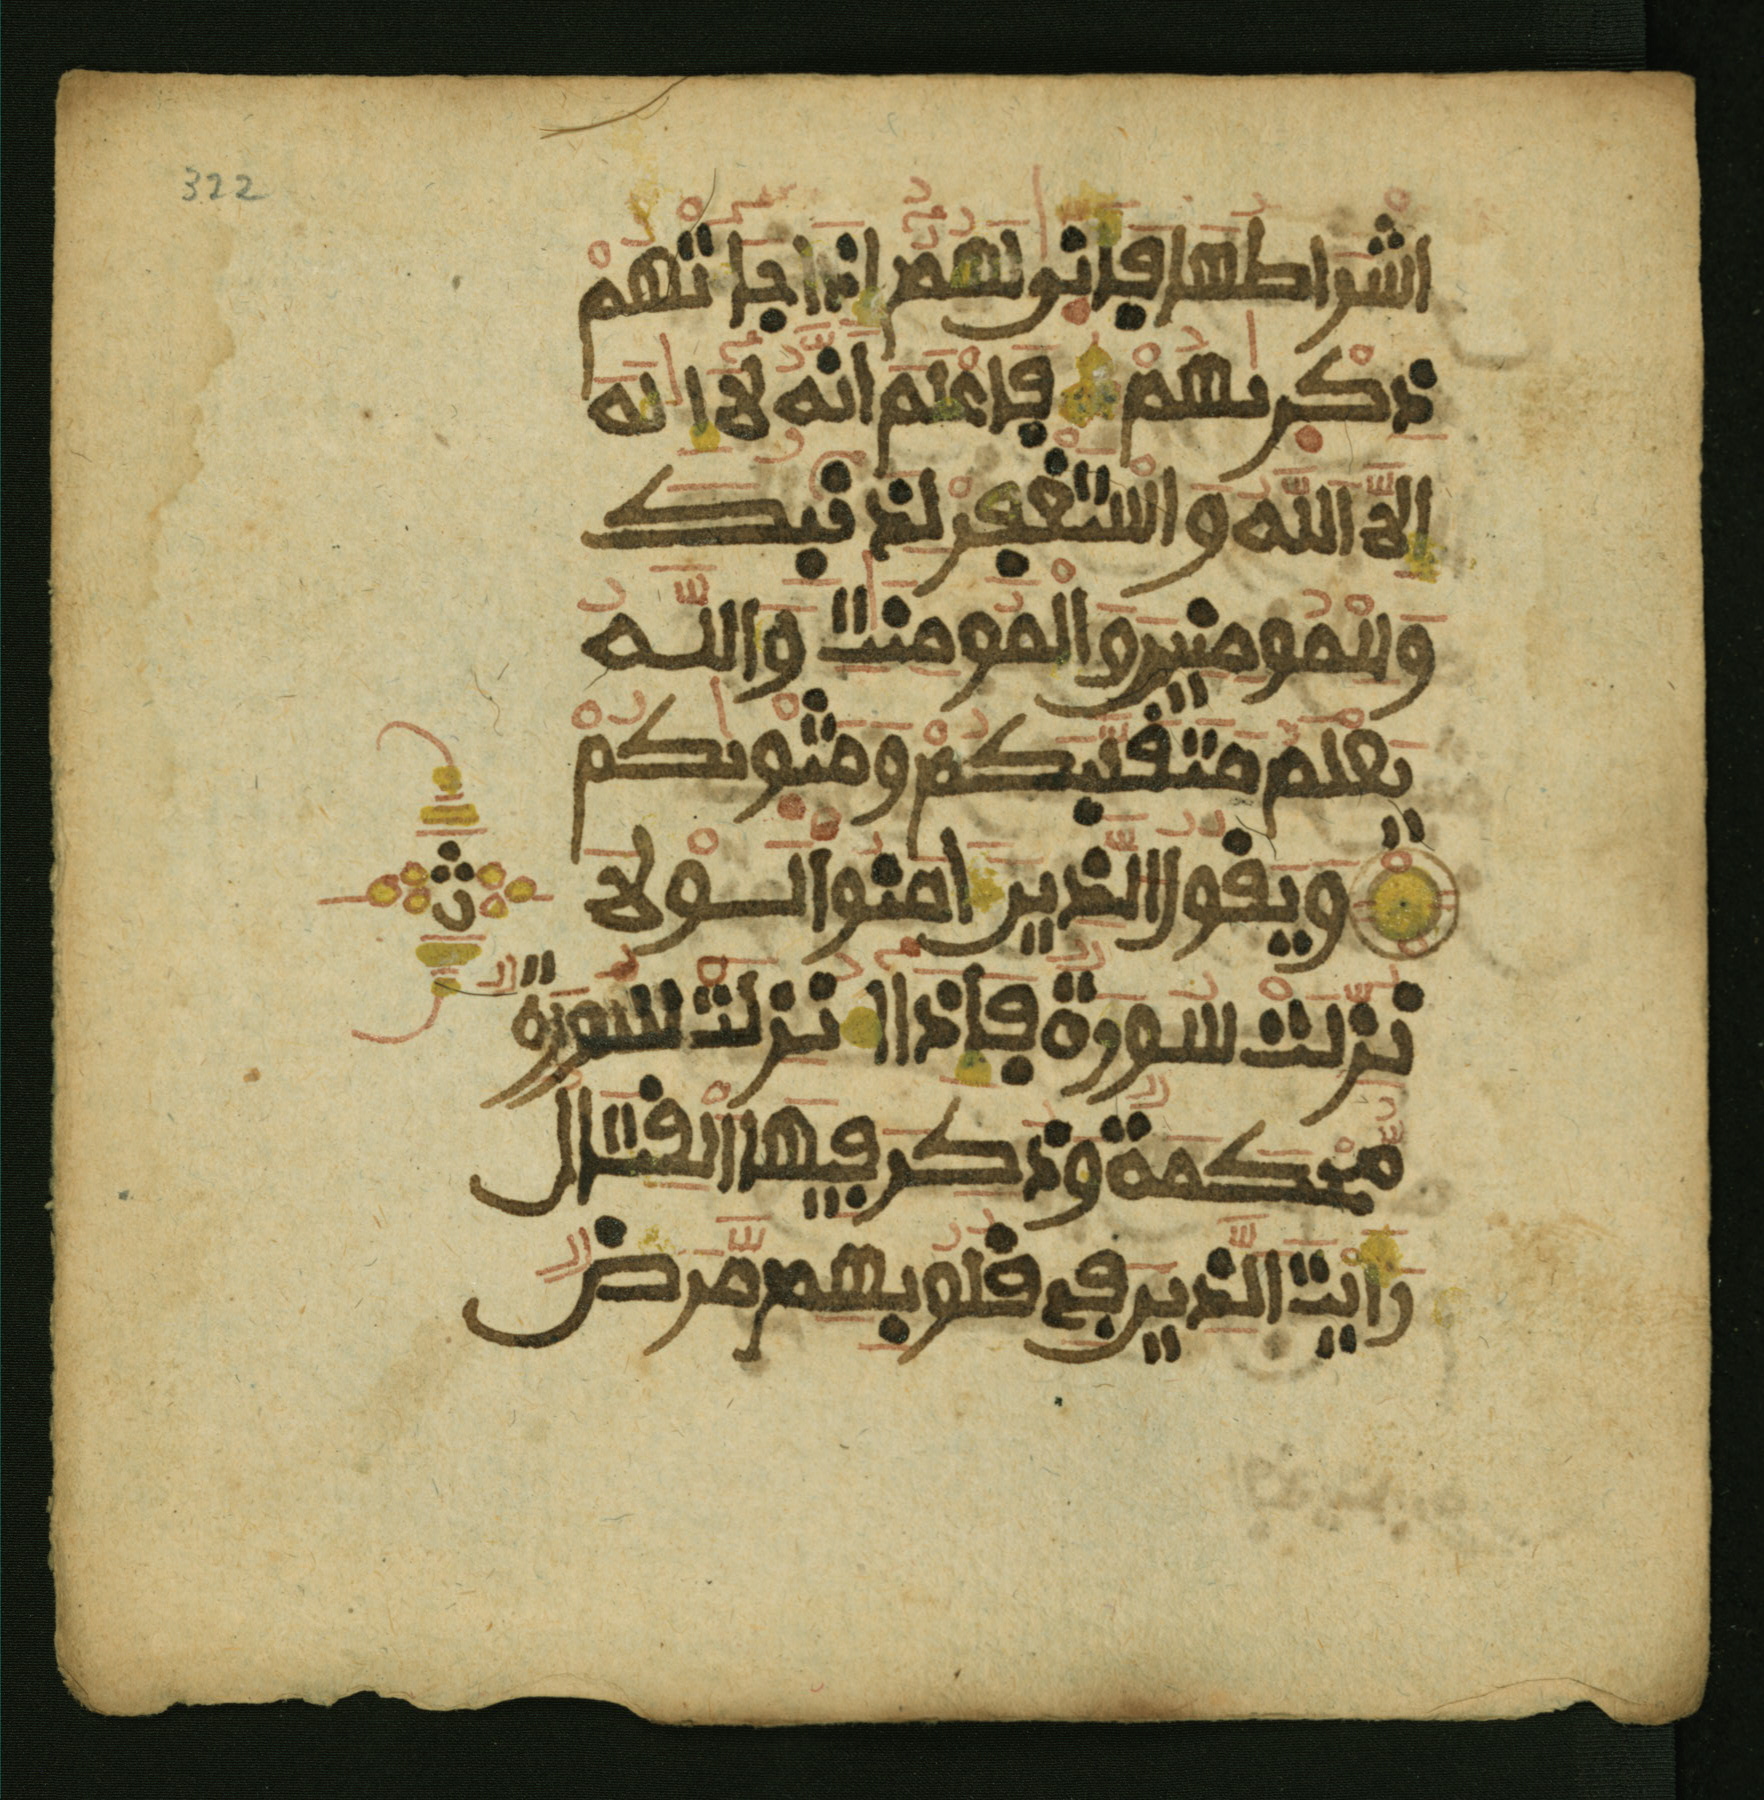 322
اشراطها فانى لهم اذا جاتهم
ذكريهم فاعلم انه لا اله
الا الله واستغفر لذنبك
وللمومنين والمومنت والله
يعلم متقلبكم ومثويكم
ويقول الذين امنوا لولا
نزلت سورة فاذا انزلت سورة
محكمة وذكر فيها القتال
رايت الذين في قلوبهم مرض